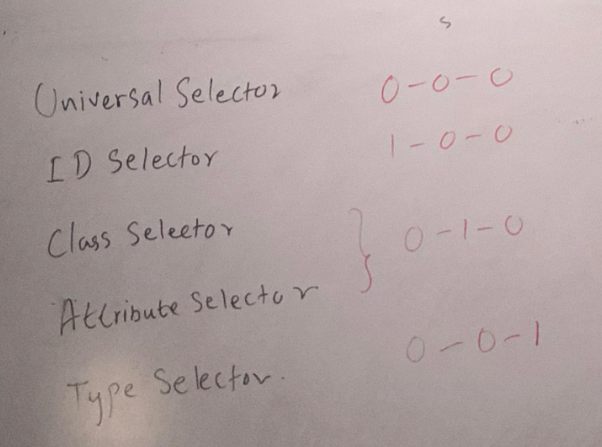 S
Universal Selector 0-0-0
ID Selector 1-0-0
Class Selector } 0-1-0
Attribute Selector
Type Selector. 0-0-1